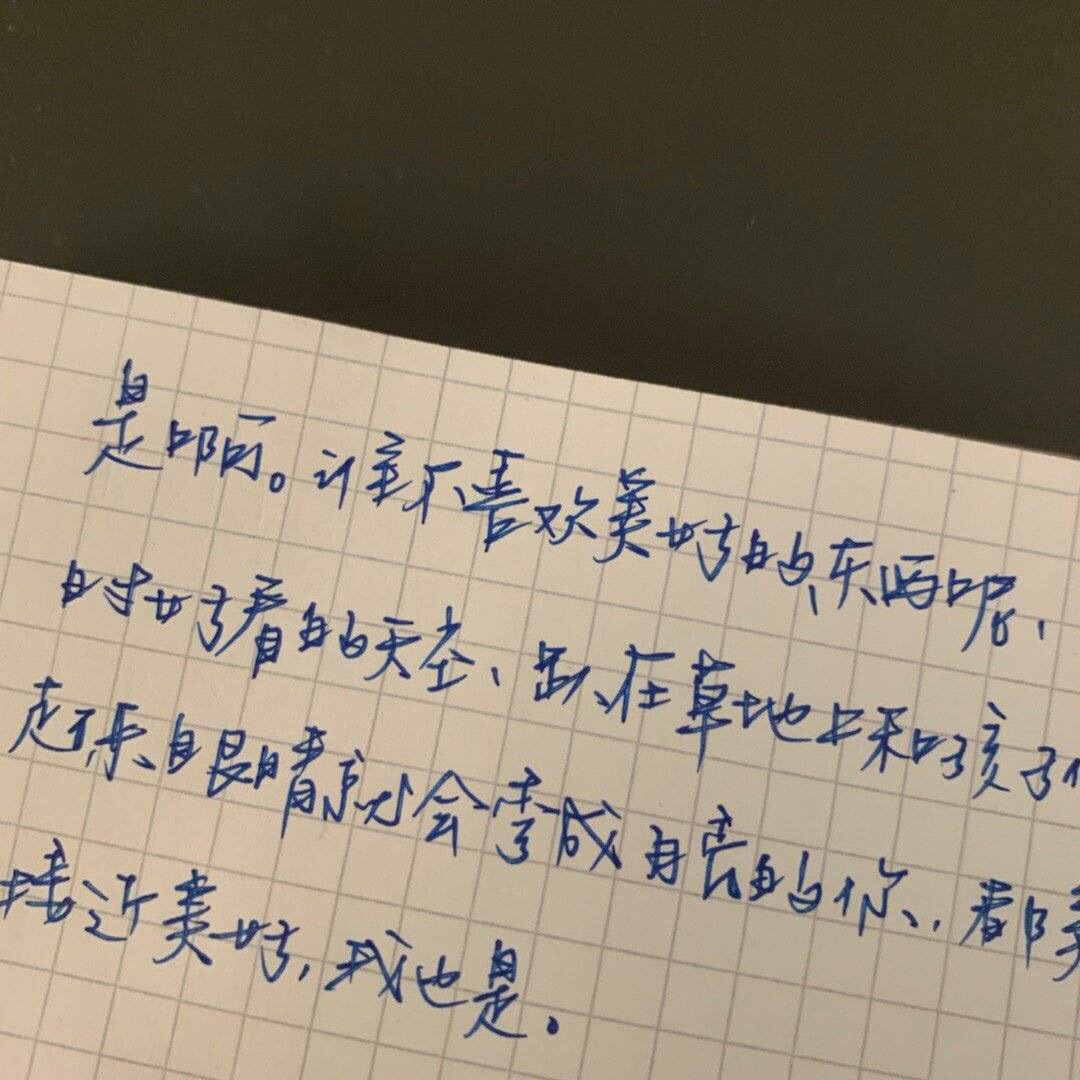 是啊。谁不喜欢美好的东西呢、
时好看的天空、在草地上和孩子
起来眼睛就会变成月亮的你、，都
接近美好，我也是。